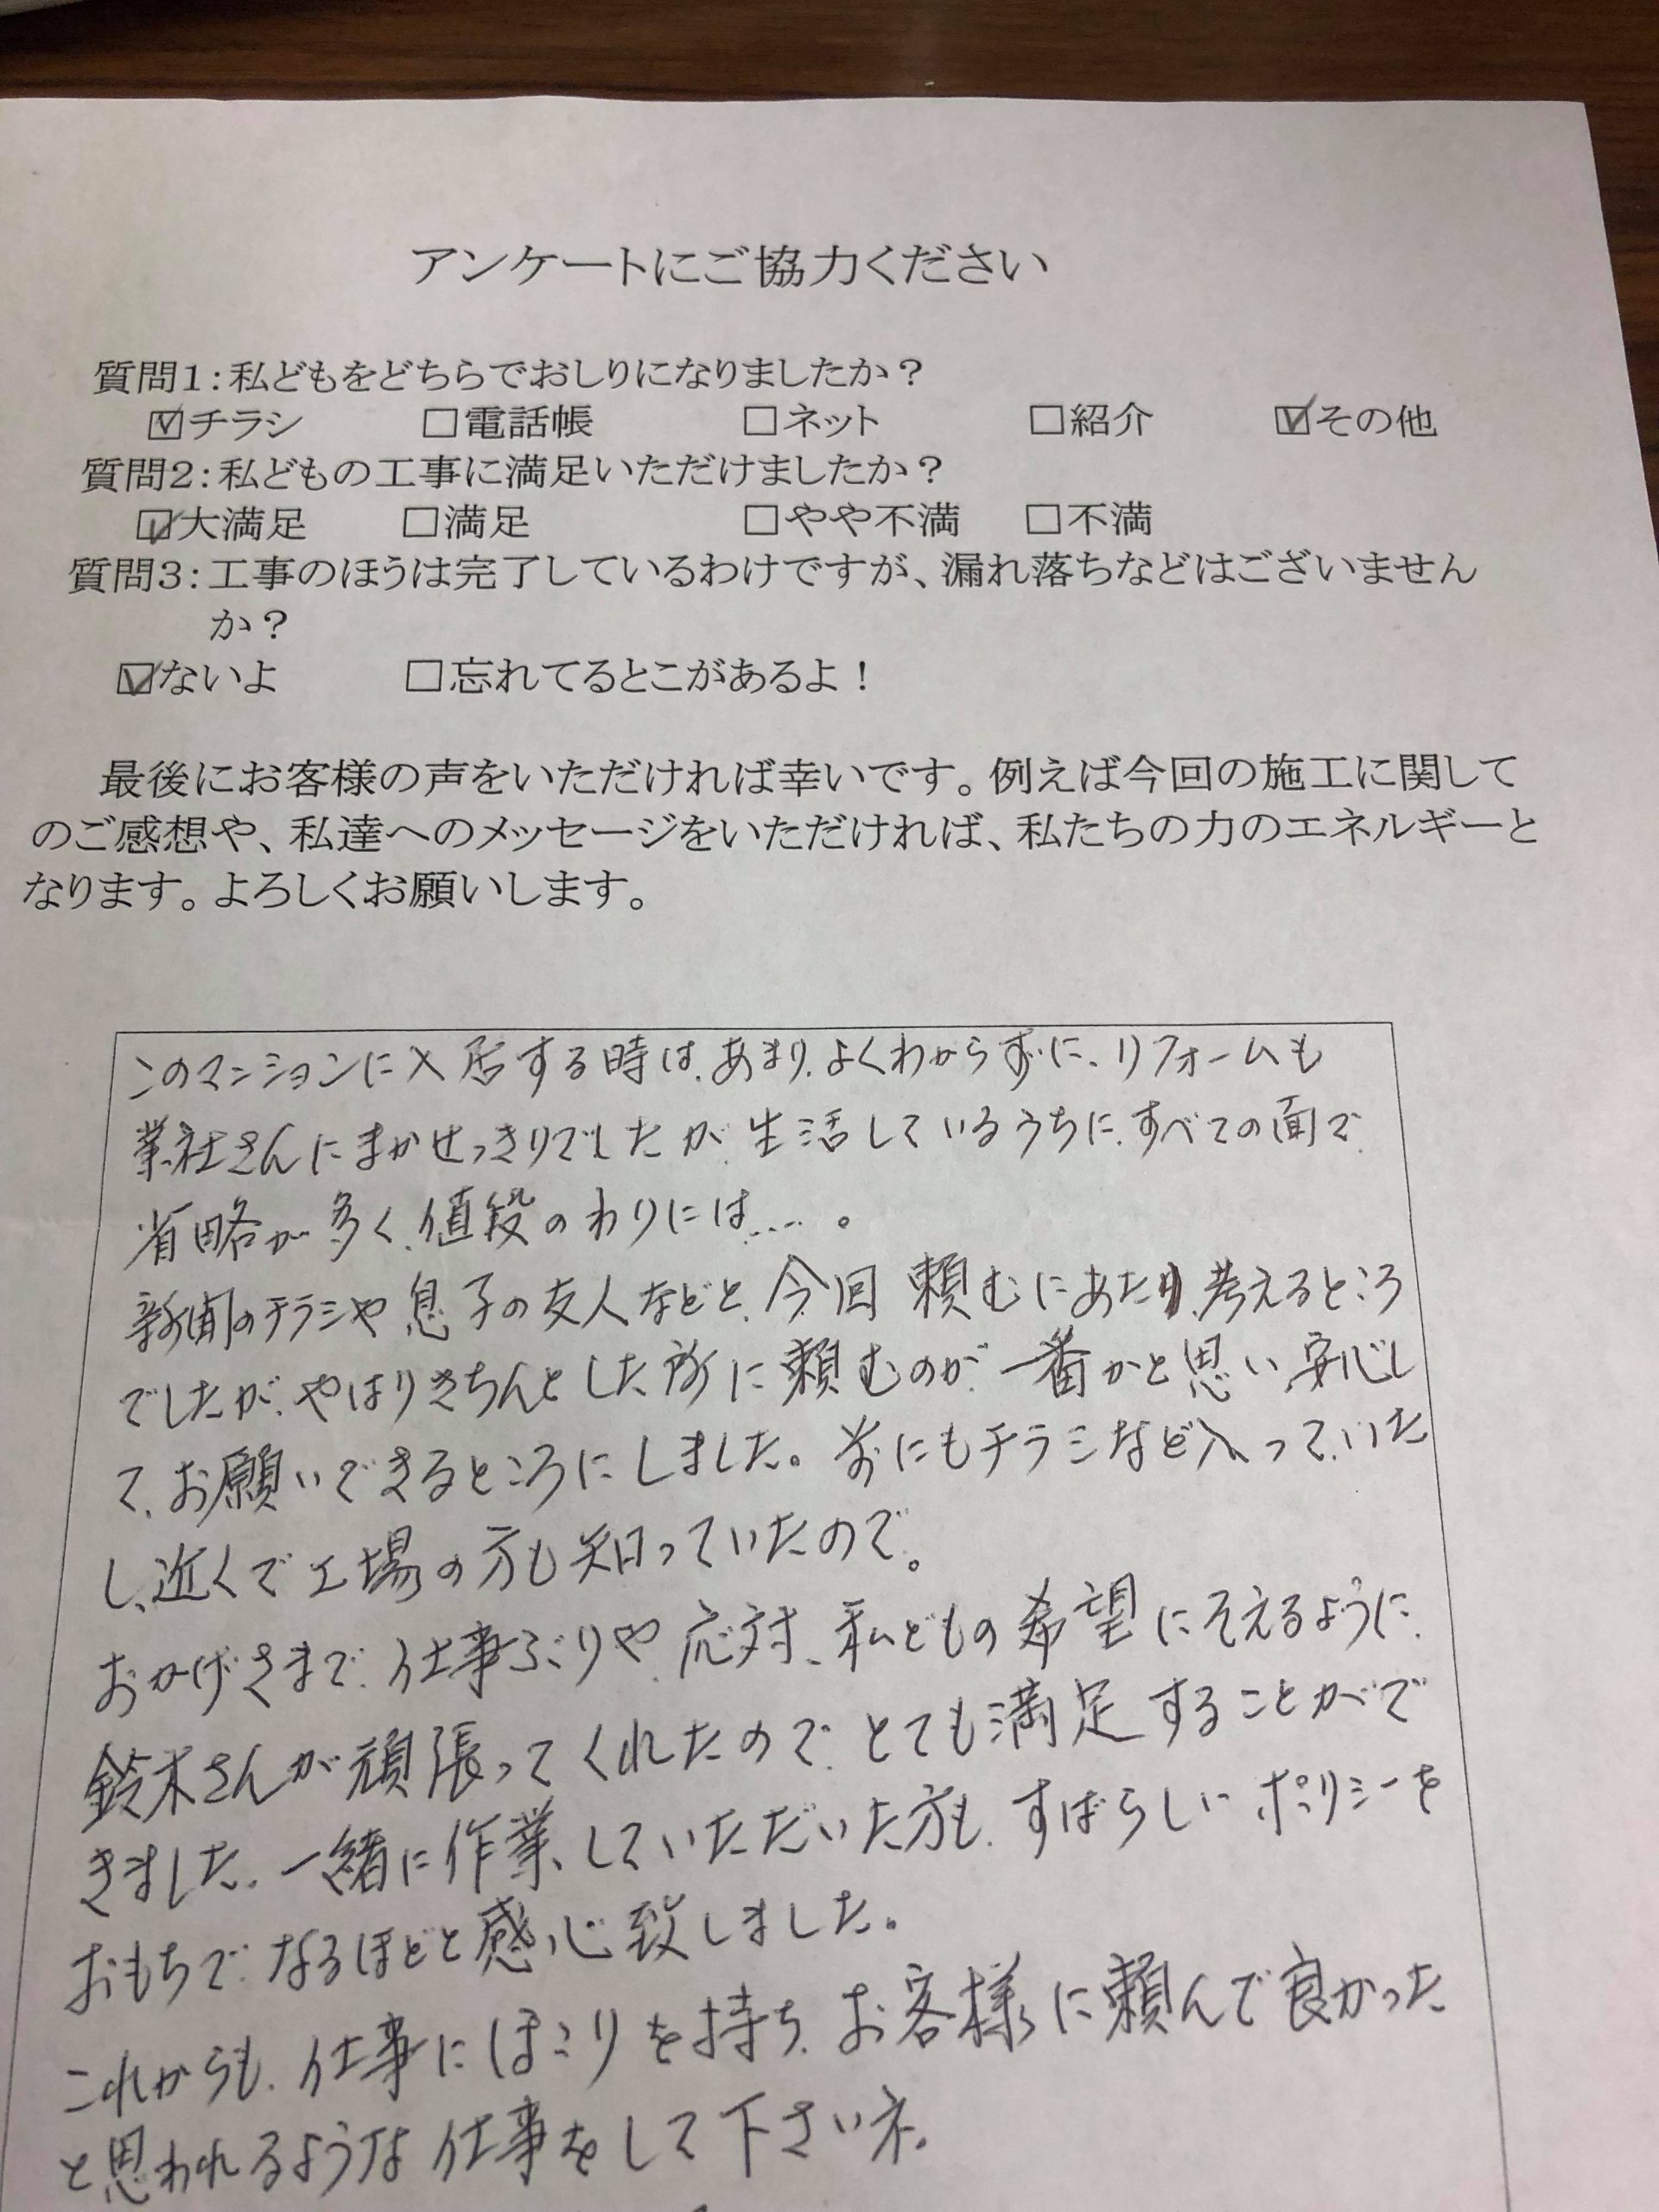 アンケートにご協力ください
質問1:私どもをどちらでおしりになりましたか?
☑チラシ □電話帳 □ネット □紹介 ☑その他
質問2:私どもの工事に満足いただけましたか?
☑大満足 □満足 □やや不満 □不満
質問3:工事のほうは完了しているわけですが、漏れ落ちなどはございません
か?
☑ないよ □忘れてるとこがあるよ!
最後にお客様の声をいただければ幸いです。例えば今回の施工に関して
のご感想や、私達へのメッセージをいただければ、私たちの力のエネルギーと
なります。よろしくお願いします。
このマンションに入居する時は、あまり、よくわからずに、リフォームも
業社さんにまかせっきりでしたが、生活しているうちに、すべての面で
省略が多く、値段のわりには....。
新聞のチラシや息子の友人などと、今回頼むにあたり、考えるところ
でしたが、やはりきちんとした所に頼むのが一番かと思い、安心し
て、お願いできるところにしました。前にもチラシなど入っていた
し、近くで工場の方も知っていたので。
おかげさまで、仕事ぶりや、応対、私どもの希望にそえるように、
鈴木さんが頑張ってくれたので、とても満足することがで
きました。一緒に作業していただいた方も、すばらしいポリシーを
おもちで、なるほどと感心致しました。
これからも、仕事にほこりを持ち、お客様に頼んで良かった
と思われるような仕事をして下さいネ。